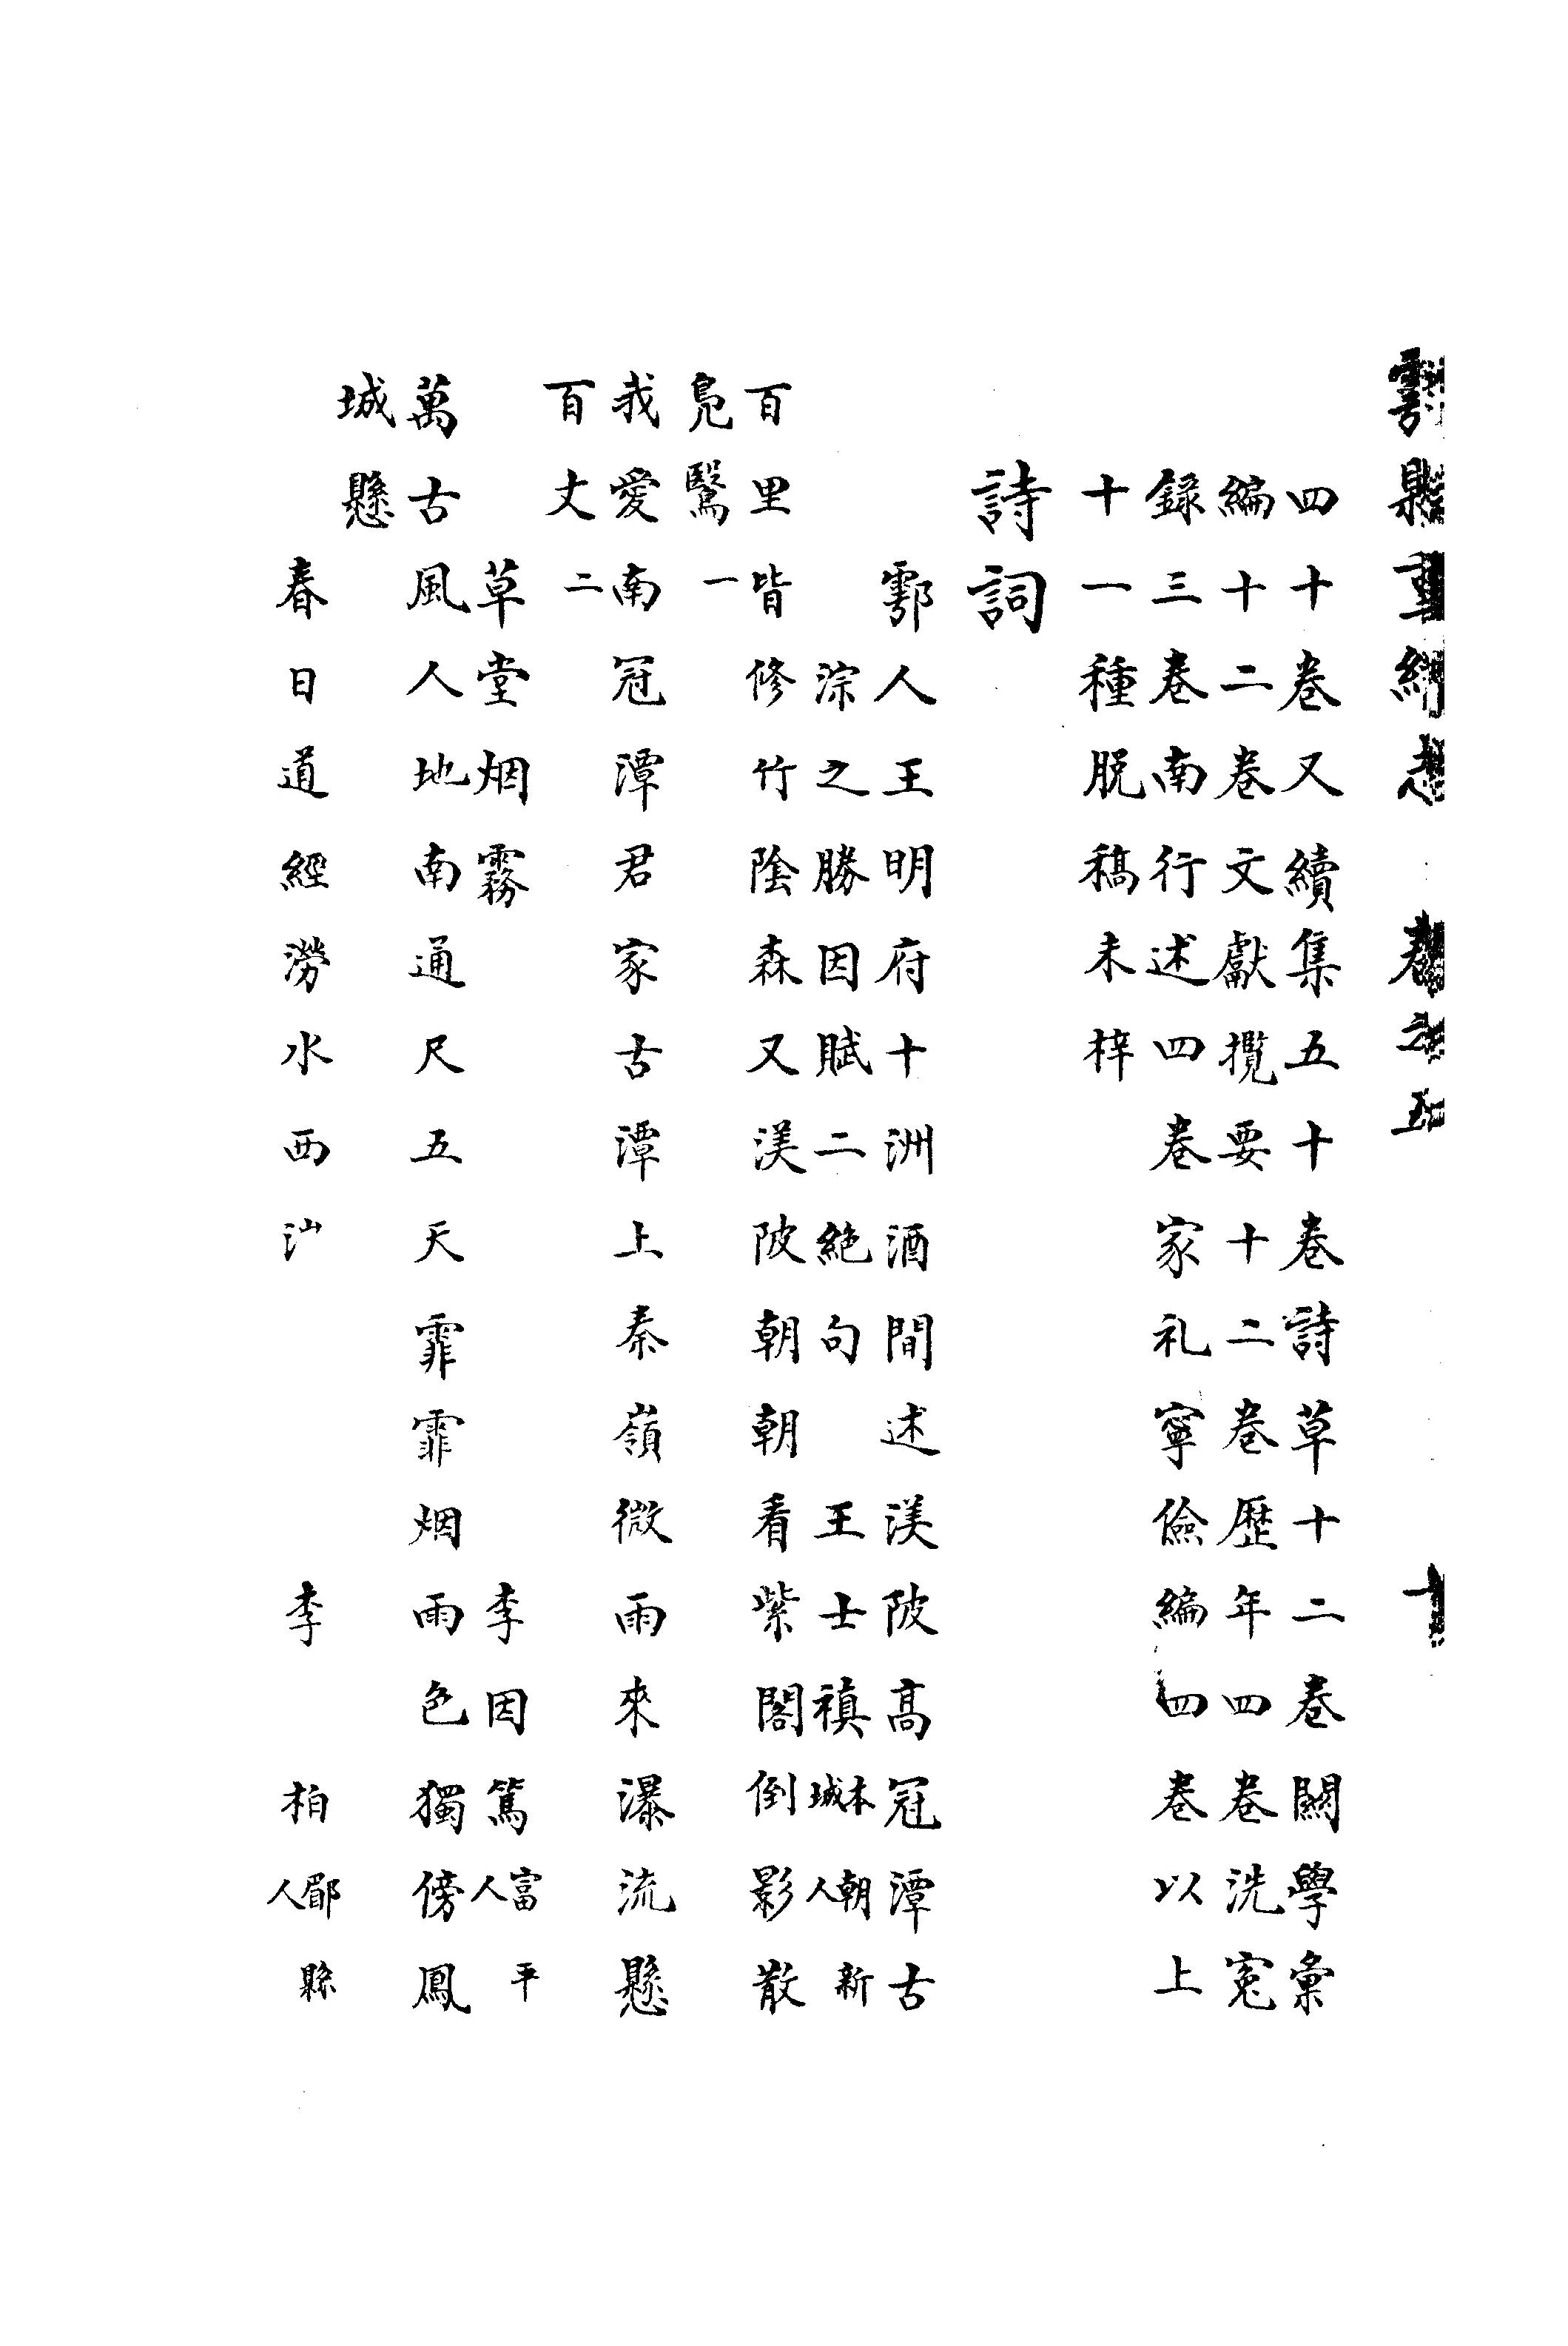 鄠縣重續志　卷之五　十
四十卷又續集五十卷詩草十二卷關學彙
編十二卷文獻攬要十二卷歷年四卷洗冤
錄三卷南行述四卷家礼寧儉編四卷以上
十一種脫稿未梓
詩詞
鄠人王明府十洲酒間述渼陂高冠潭古
淙之勝因賦二絕句　王士禎本朝新城人
百里皆修竹陰森又渼陂朝朝看紫閣倒影散
鳧鷖一
我愛南冠潭君家古潭上秦嶺微雨來瀑流懸
百丈二
草堂烟霧　李因篤富平人
萬古風人地南通尺五天霏霏烟雨色獨傍鳳
城懸
春日道經澇水西　李　柏郿縣人